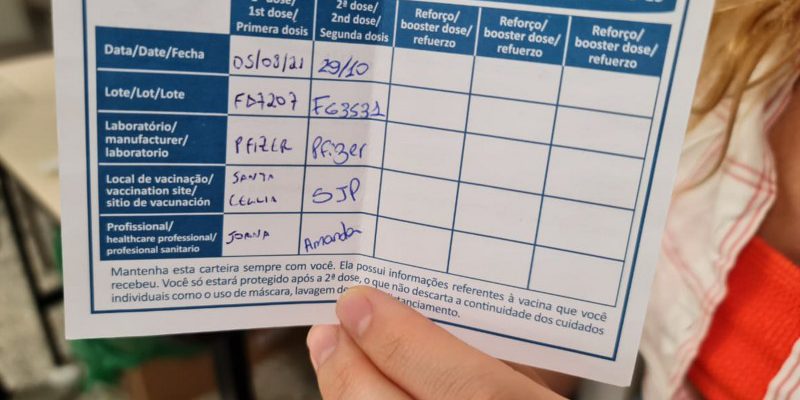 1st dose/
Primera dosis
2ª dose/
2nd dose/
Segunda dosis
Reforço/
booster dose/
refuerzo
Reforço/
booster dose/
refuerzo
Reforço/
booster dose/
refuerzo
Data/Date/Fecha
05/08/21
29/10
Lote/Lot/Lote
FD7207
FG3531
Laboratório/
manufacturer/
laboratorio
PFIZER
Pfizer
Local de vacinação/
vaccination site/
sitio de vacunación
SANTA
CELLIA
SJP
Profissional/
healthcare professional/
profesional sanitario
JORNA
Amanda
Mantenha esta carteira sempre com você. Ela possui informações referentes à vacina que você
recebeu. Você só estará protegido após a 2ª dose, o que não descarta a continuidade dos cuidados
individuais como o uso de máscara, lavagem